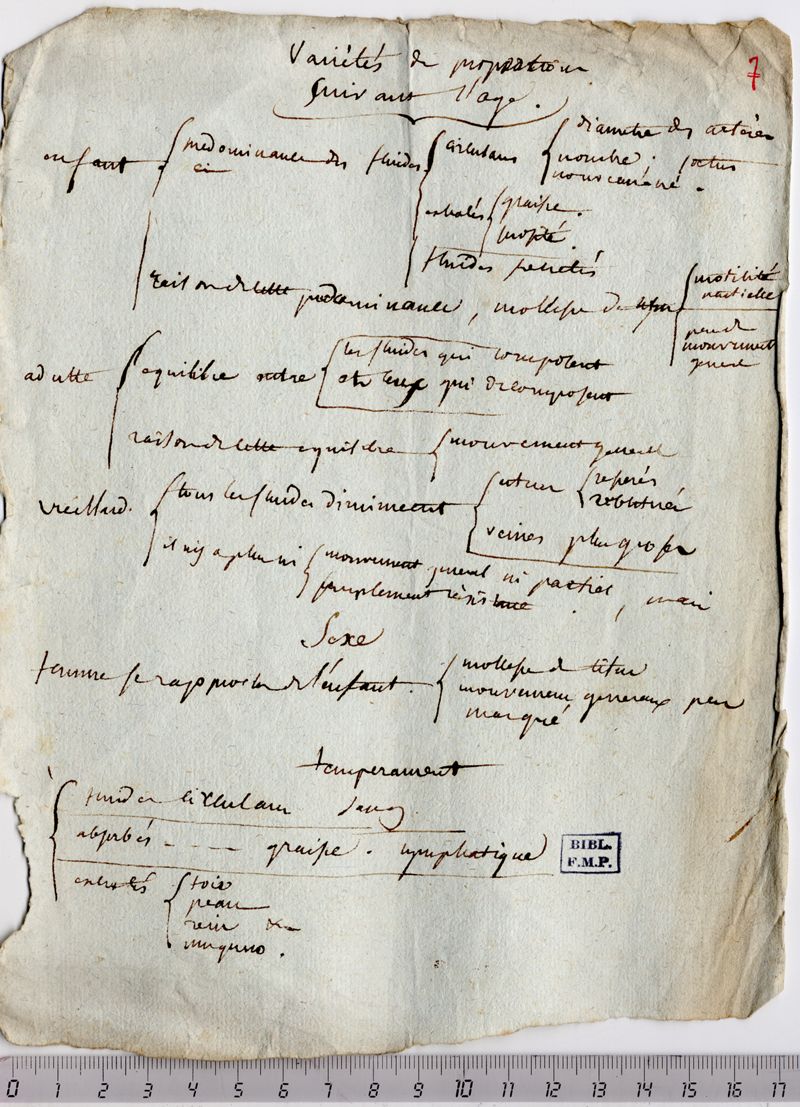 7
Variétés de proportion
suivant l'age.
enfant
predominance des fluides
circulans
diametre des arteres
nombre.
foetus
nouveau né.
exhalés
graisse.
fluides secretés
raison de cette predominance, mollesse de tissu
motilité
partielle
peu de
mouvement
general
adulte
equilibre entre
les fluides qui composent
et ceux qui decomposent
raison de cette equilibre
mouvement general
vieillard.
tous les fluides diminuent
arteres
veines plus grosses
il n'y a plus ni
mouvement general ni partiel, mais
simplement resistance.
Sexe
femme se rapproche de l'enfant.
mollesse de tissu
mouvemens generaux peu
marqué
temperament
fluides circulans sang
absorbés - - - - graisse. lymphatique
BIBL.
F.M.P.
exhalés
foie
peau
rein &c
muqueuse.
0 1 2 3 4 5 6 7 8 9 10 11 12 13 14 15 16 17